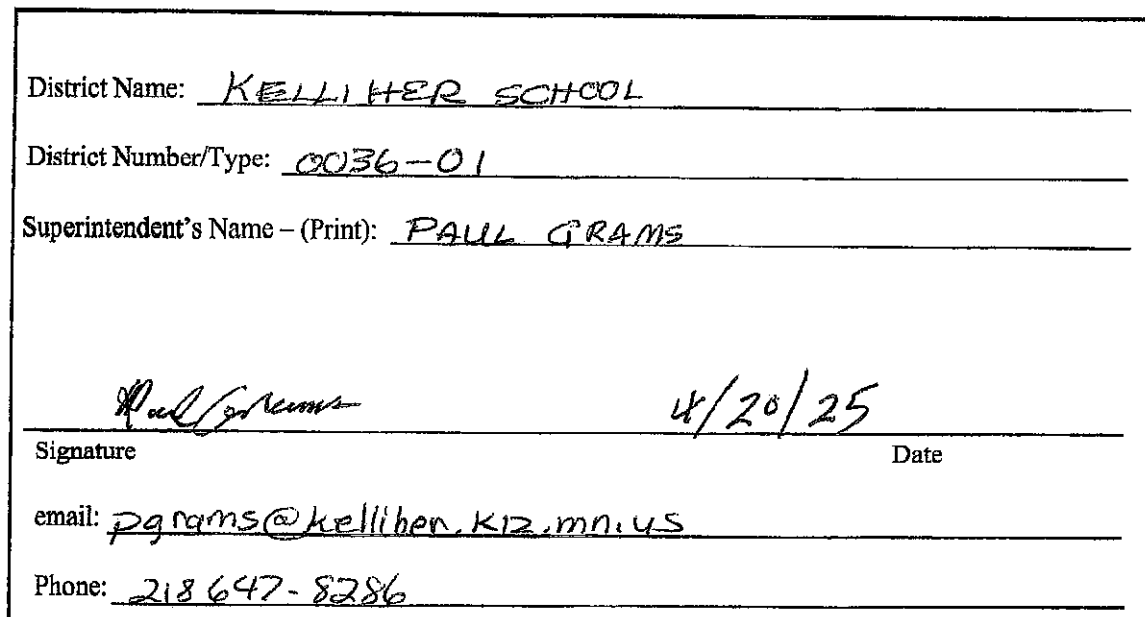 District Name: KELLIHER SCHOOL
District Number/Type: 0036-01
Superintendent's Name – (Print): PAUL GRAMS
Paul Grams 4/20/25
Signature Date
email: pgrams@kelliher.k12.mn.us
Phone: 218 647-8286